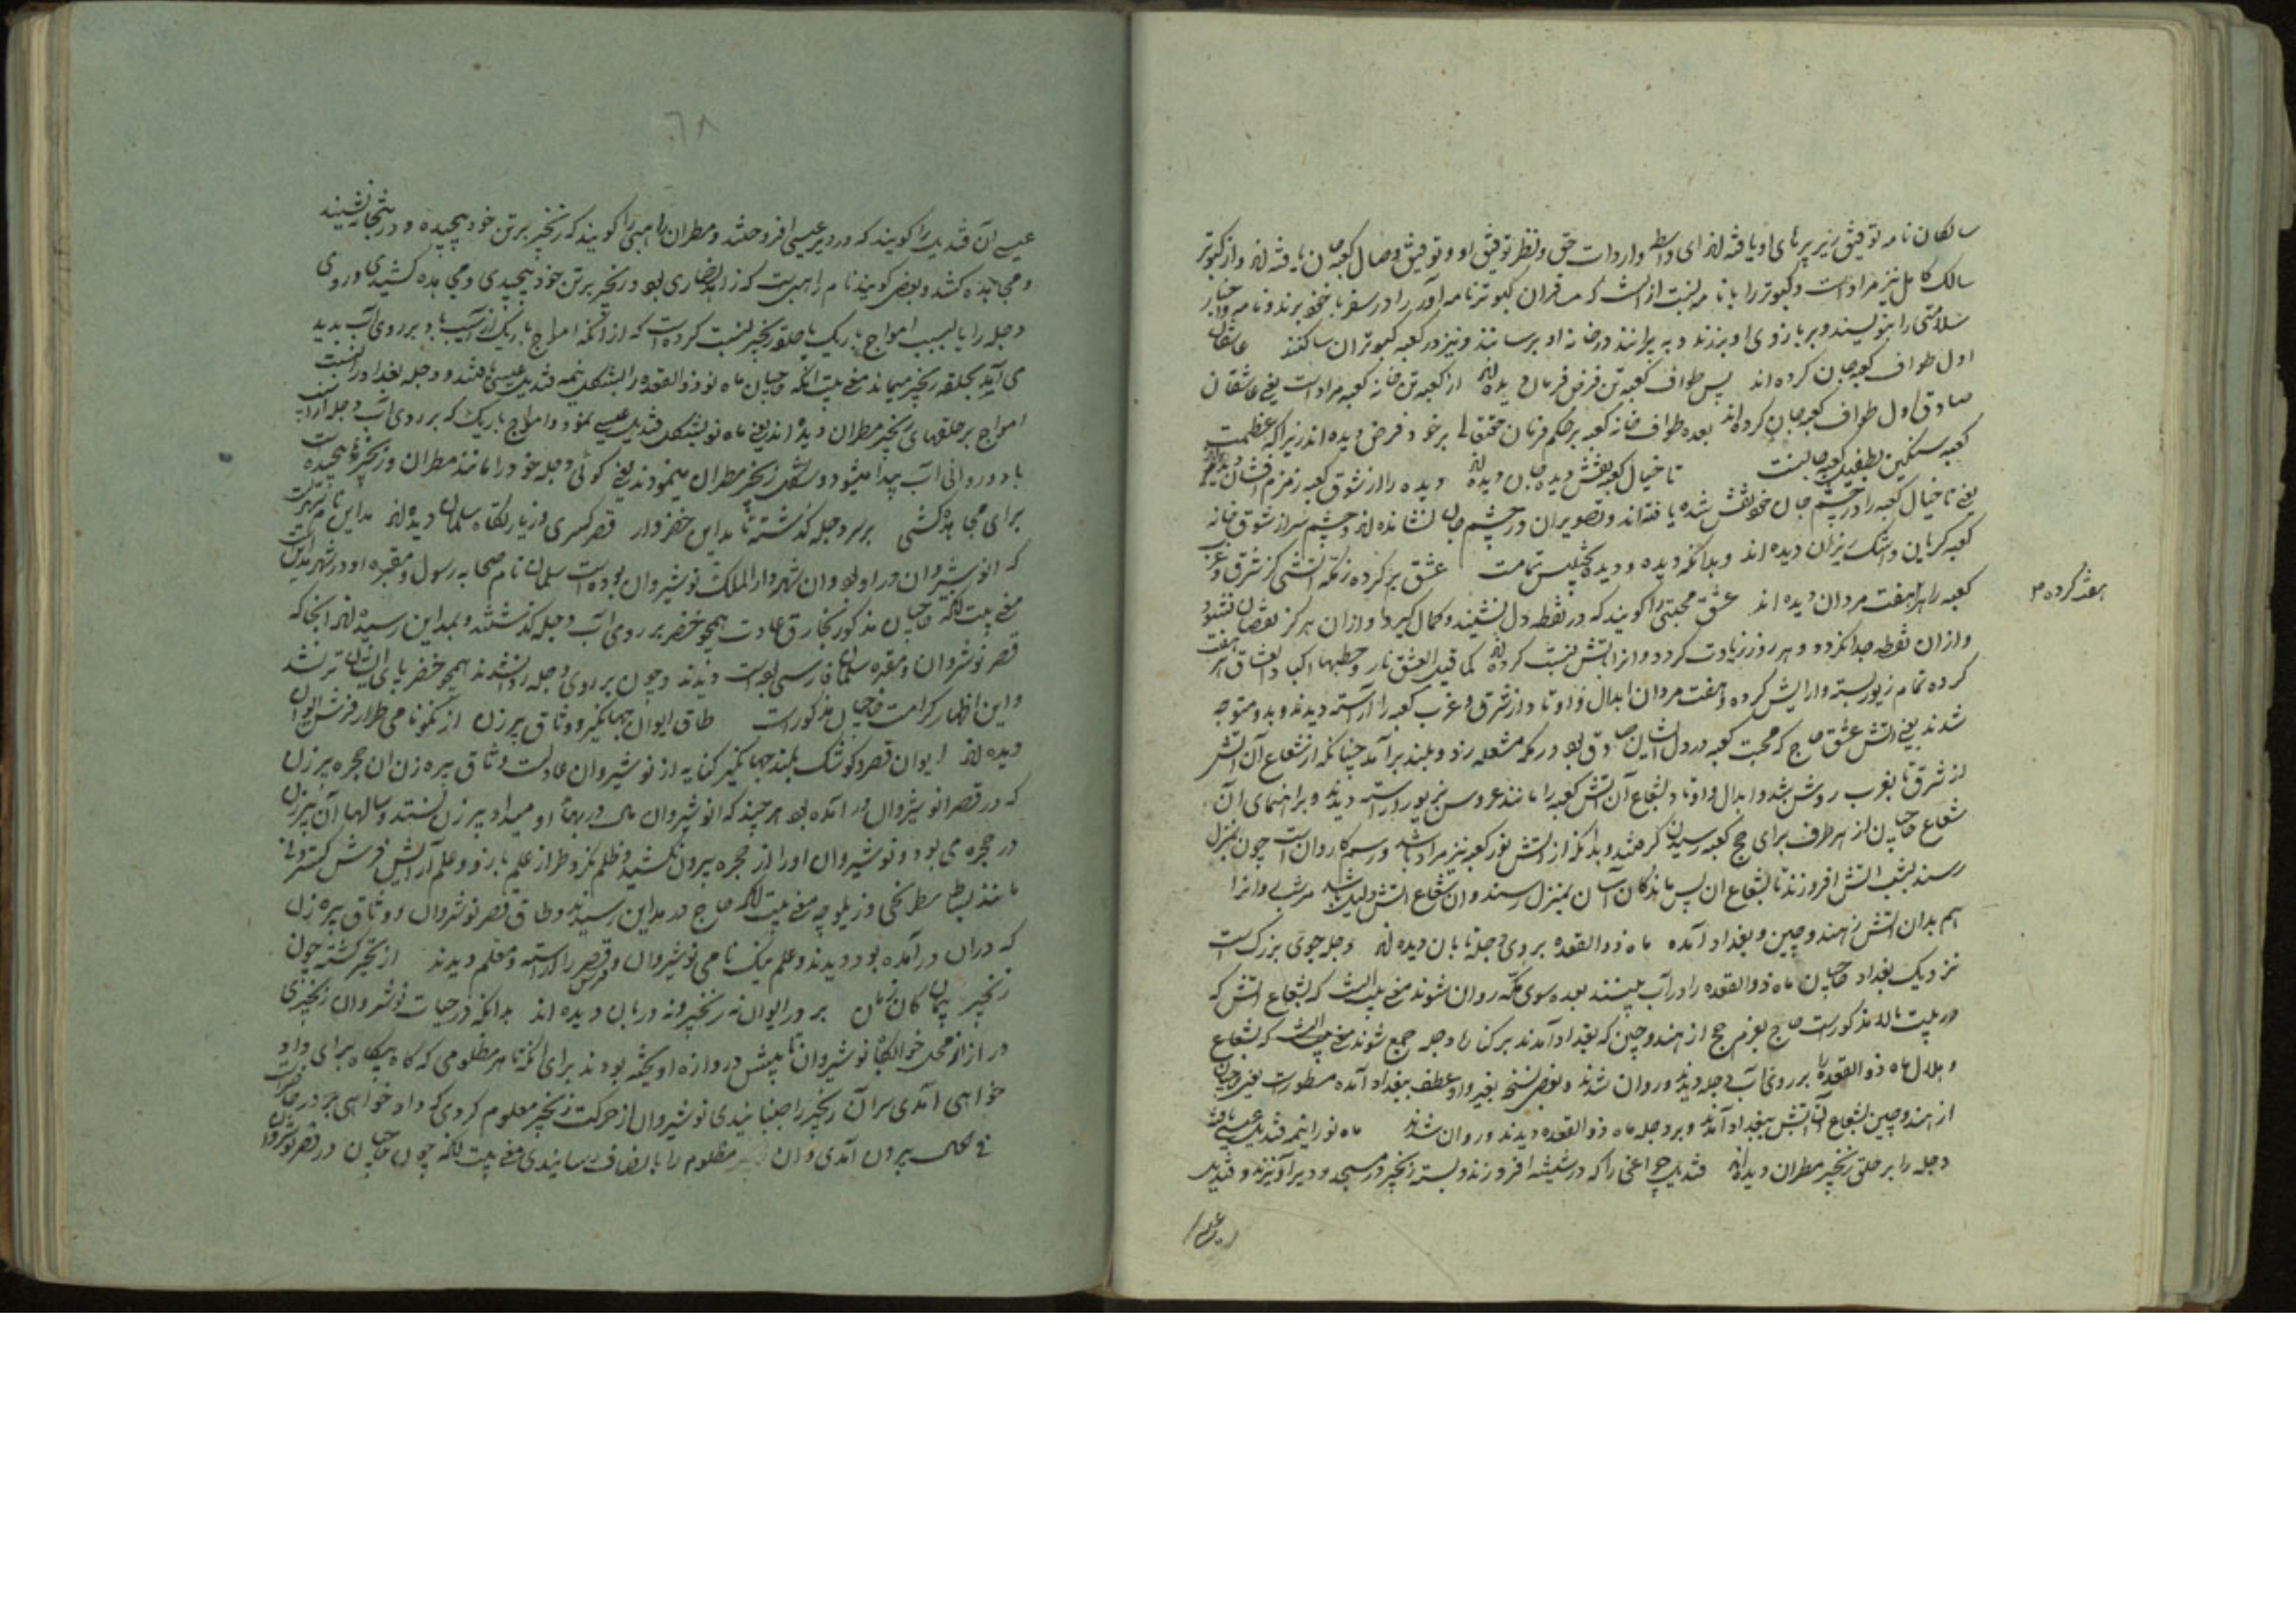 سالکان نامه توفیق زیر پرهای او یافته اند ای واسطه واردات حق و نظر توفیق او و توفیق وصال کعبه جان یافته اند و از کبوتر
سالک کامل نیز مراد است و کبوتر را با نامه نسبت از آنست که مسافران کبوتر نامه آور را در سفر با خود برند و نامه و اخبار
سلامتی را بنویسند و بر بازوی او بندند و بپرانند در خانه او برسانند و نیز در کعبه کبوتران ساکنند عاشقان
اول طواف کعبه جان کرده اند پس طواف کعبه تن فرض فرمان دیده اند از کعبه تن خانه کعبه مراد است یعنی عاشقان
صادق اول طواف کعبه جان کرده اند بعده طواف خانه کعبه بر حکم فرمان حقتعالی بر خود فرض دیده اند زیرا که عظمت
کعبه سنگین بطفیل کعبه جانست تا خیال کعبه نقش دیده جان دیده اند دیده را از شوق کعبه زمزم افشان دیده اند
یعنی تا خیال کعبه را در چشم جان خود نقش شده یافته اند و تصویر آن در چشم جان نشانده اند و چشم سر از شوق خانه
کعبه گریان و اشک ریزان دیده اند و بدانکه دیده و دیده تجنیس تمامست عشق بر کرده ز مکه آتشی کز شرق و غرب
کعبه را هر هفت مردان دیده اند عشق محبتی را گویند که در نقطه دل نشیند و کمال گیرد و از آن هرگز نقصان نشود
و از آن نقطه جدا نگردد و هر روز زیادت گردد و آنرا بآتش نسبت کرده اند کما قیل العشق نار و حطبها اکباد العشاق هر هفت
هفت کرده ۳
کرده تمام زیور بسته و آرایش کرده و هفت مردان ابدال و اوتاد از شرق و غرب کعبه را آراسته دیدند و بدو متوجه
شدند یعنی آتش عشق حاج که محبت کعبه در دل ایشان صادق بود در مکه مشعله زد و بلند برآمد چنانکه از شعاع آن آتش
از شرق تا بغرب روشن شد و ابدال و اوتاد بشعاع آن آتش کعبه را مانند عروس بزیور آراسته دیدند و براهنمای آن
شعاع حاجیان از هر طرف برای حج کعبه رسیدن گرفتند و بدانکه از آتش نور کعبه نیز مراد باشد و رسم کاروان است چون بمنزل
رسند بشب آتش افروزند تا بشعاع آن پس ماندگان آسان بمنزل رسند و آن شعاع آتش دلیل باشد مر شب روانرا
هم بدان آتش ز هند و چین و بغداد آمده ماه ذوالقعده بروی دجله تابان دیده اند دجله جوی بزرگ است
نزدیک بغداد حاجیان ماه ذوالقعده را در آب بینند بعده سوی مکه روان شوند معنی بیت آنست که بشعاع آتش که
در بیت بالا مذکور است حاج بعزم حج از هند و چین که بغداد آمدند بر کناره دجله جمع شوند معنی بیت آنست که بشعاع
و هلال ماه ذوالقعده را بر روی آب دجله دیدند و روان شدند و بعضی نسخ بغیر واو عطف ببغداد آمده مسطور است یعنی حاجیان
از هند و چین بشعاع آن آتش ببغداد آمدند و بر دجله ماه ذوالقعده دیدند و روان شدند ماه نو را نیمه قندیل عیسی یافته
دجله را بر حلق زنجیر مطران دیده اند قندیل چراغی را که در شیشه افروزند و بسته زنجیر در مسجد و دیر آویزند و قندیل
عیسی
٦٨
عیسی آن قندیل را گویند که در دیر عیسی افروختند و مطران راهبی را گویند که زنجیر بر تن خود پیچیده و در بتخانه نشیند
و مجاهده کشد و بعضی گویند نام راهبی ست که زاهد نصاری بود و زنجیر بر تن خود پیچیدی و مجاهده کشیدی و روی
دجله را یا بسبب امواج باریک با حلقه زنجیر نسبت کرده است که از آنکه امواج باریک از آسیب باد بر روی آب پدید
می آید بحلقه زنجیر میماند معنی بیت آنکه حاجیان ماه نو ذوالقعده را بشکل نیمه قندیل عیسی یافتند و دجله بغداد را نسبت
امواج بر حلقهای زنجیر مطران دیده اند یعنی ماه نو بشکل قندیل عیسی نمود و امواج باریک که بر روی آب دجله از آسیب
باد و روانی آب پیدا میشود و بشکل زنجیر مطران مینمودند یعنی گوئی دجله خود را مانند مطران و زنجیرها پیچیده است
برای مجاهده کشی بر سر دجله گذشته تا مداین خضر وار قصر کسری و زیارتگاه سلمان دیده اند مداین نام شهریست
که انوشیروان در او بود و آن شهر دارالملک نوشیروان بوده است سلمان نام صحابه رسول و مقبره او در شهر مداین است
معنی بیت آنکه حاجیان مذکور بخارق عادت همچو خضر بر روی آب دجله گذشتند و بمداین رسیده اند آنجا که
قصر نوشروان و مقبره سلمان فارسی بوده است دیدند و چون بر روی دجله روان شدند همچو خضر پای ایشان تر نشد
و این اظهار کرامت حاجیان مذکور است طاق ایوان جهانگیر و وثاق پیر زن از نکونامی طراز فرش ایوان
دیده اند ایوان قصر و کوشک بلند جهانگیر کنایه از نوشیروان عادلست وثاق پیره زن آن حجره پیر زن
که در قصر انوشیروان در آمده بود هر چند که انوشیروان مال در بهای او میداد پیر زن نستد و سالها آن پیرزن
در حجره می بود و نوشیروان او را از حجره بیرون نکشید و ظلم نکرد طراز علم بازو و علم آرایش فرش گستردنی
مانند بساط شطرنجی و زیلوچه معنی بیت آنکه حاج در مداین رسیدند و طاق قصر نوشروان و وثاق پیره زن
که در آن درآمده بود دیدند و علم نیک نامی نوشیروان و فرش قصر را آراسته و معلم دیدند از تحیر گشته چون
زنجیر پیچان کان زمان بر در ایوان نه زنجیر و نه دربان دیده اند بدانکه در حیات نوشروان زنجیری
دراز از محل خوابگاه نوشیروان تا پیش دروازه آویخته بودند برای آنکه تا هر مظلومی که گاه بیگاه برای داد
خواهی آمدی سر آن زنجیر را جنبانیدی نوشیروان از حرکت زنجیر معلوم کردی که داد خواهی بر در حاضر است
فی الحال بیرون آمدی و آن مظلوم را بانصاف رسانیدی معنی بیت آنکه چون حاجیان در قصر نوشیروان